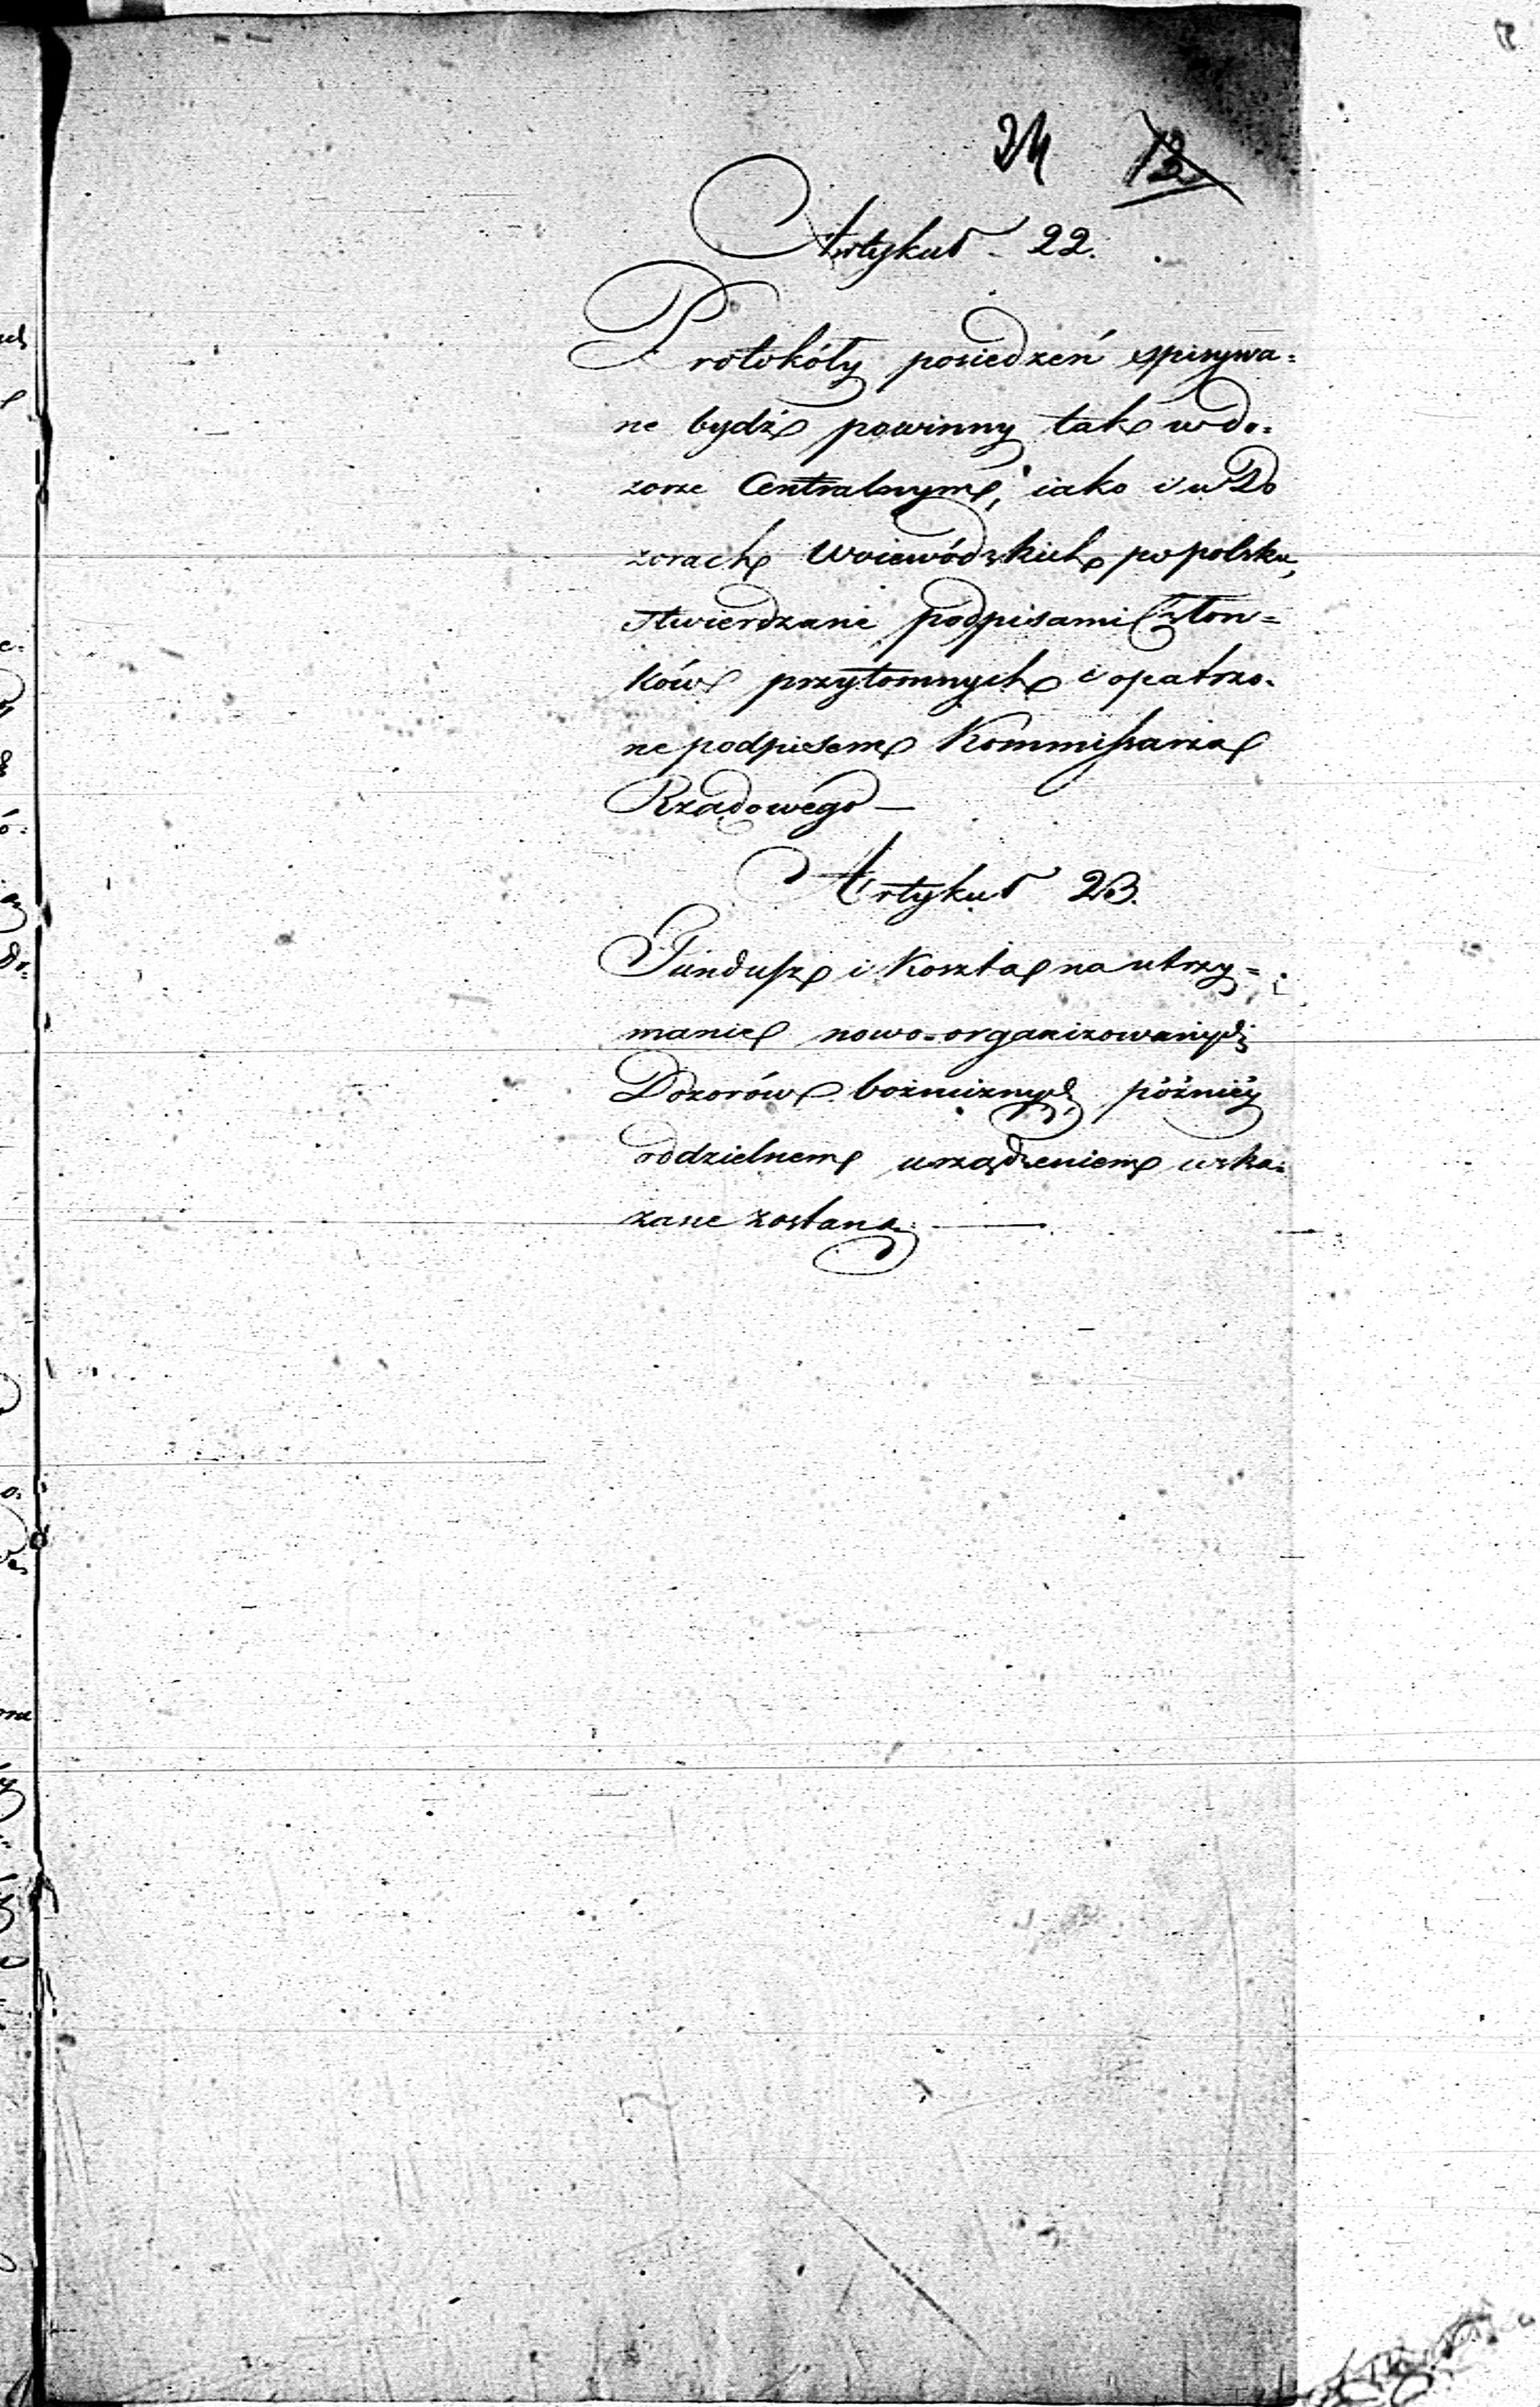 24 12
Artykuł 22.
Protokóły posiedzeń spisywa=
ne bydź powinny tak w do=
zorze Centralnym, iako i w Do
zorach Woiewódzkich po polsku,
stwierdzane podpisami Człon=
ków przytomnych i opatrzo=
ne podpisem Kommissarza
Rządowego —
Artykuł 23.
Fundusze i Koszta na utrzy=
manie nowo-organizowanych
Dozorów bożnicznych, późniéy
oddzielnem urządzeniem wska=
zane zostaną. —